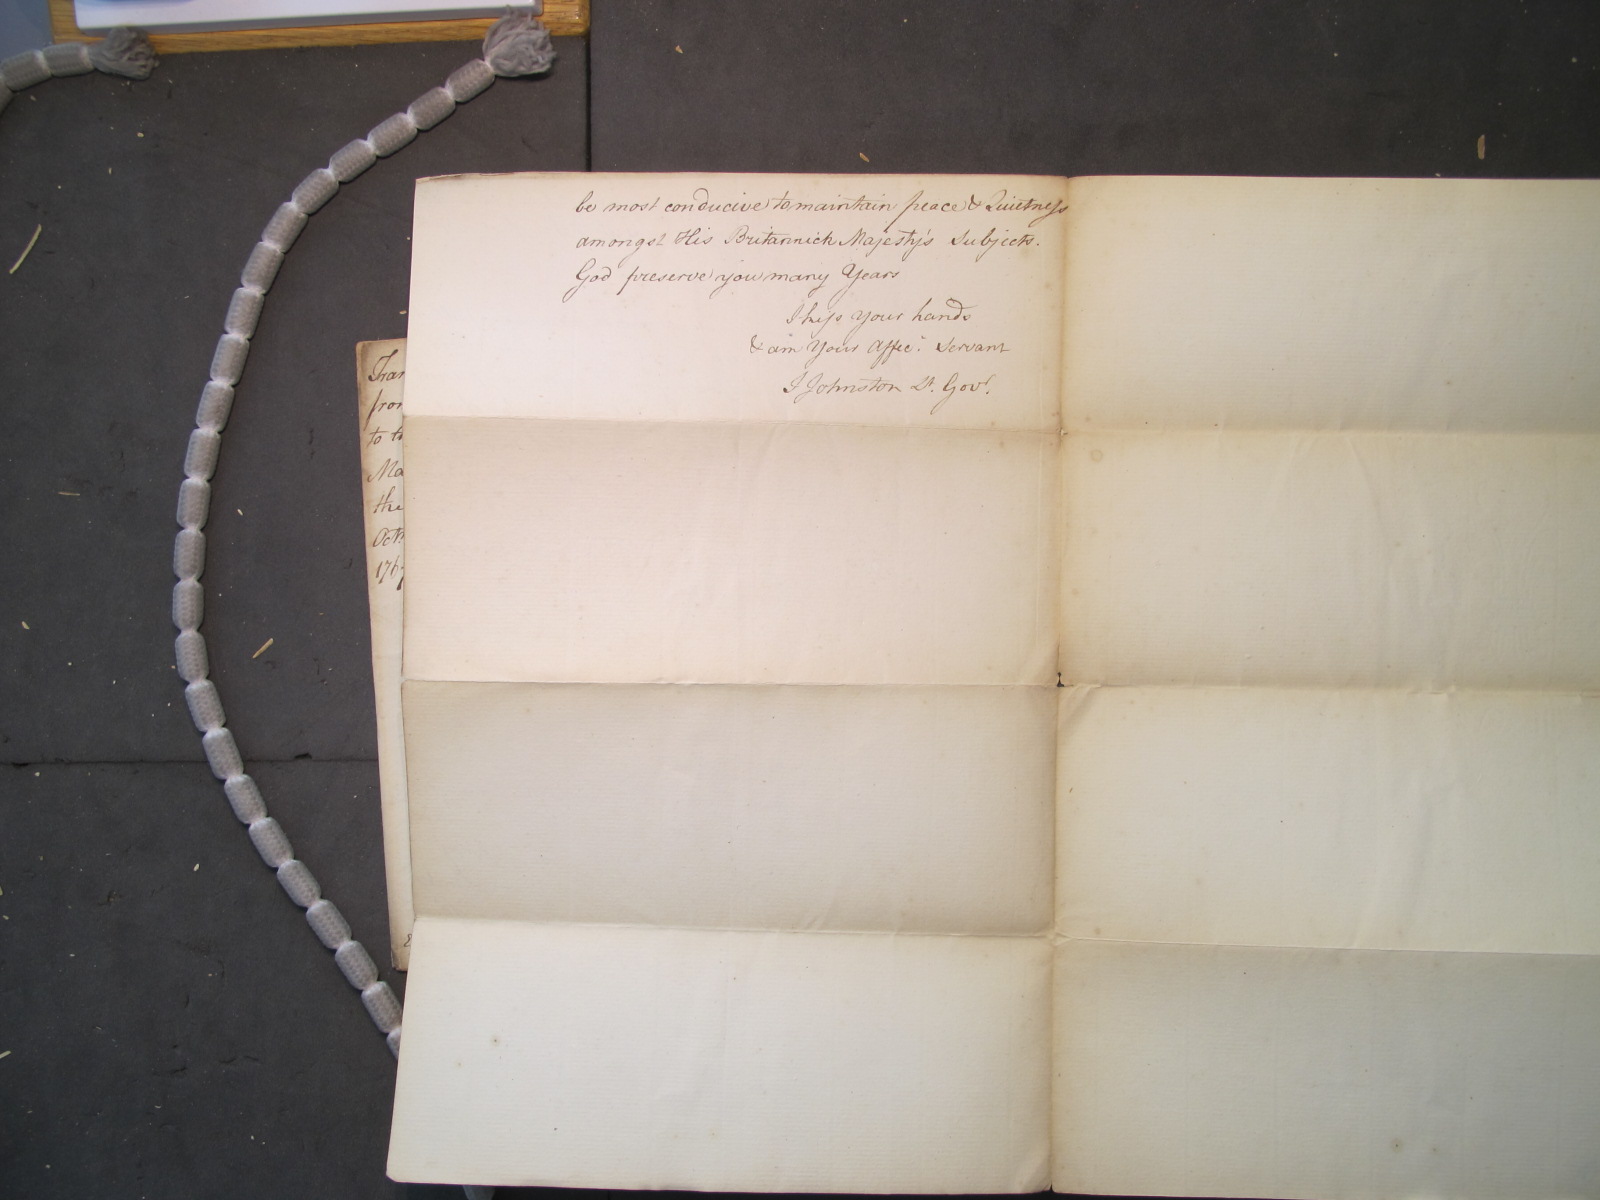 be most conducive to maintain peace & Quietness
amongst His Britannick Majesty's Subjects.
God preserve you many Years
I kiss your hands
& am Your Affec.t Servant
J Johnston Lt. Gov.r
Tran
from
to th
Ma
the
Octr
1767